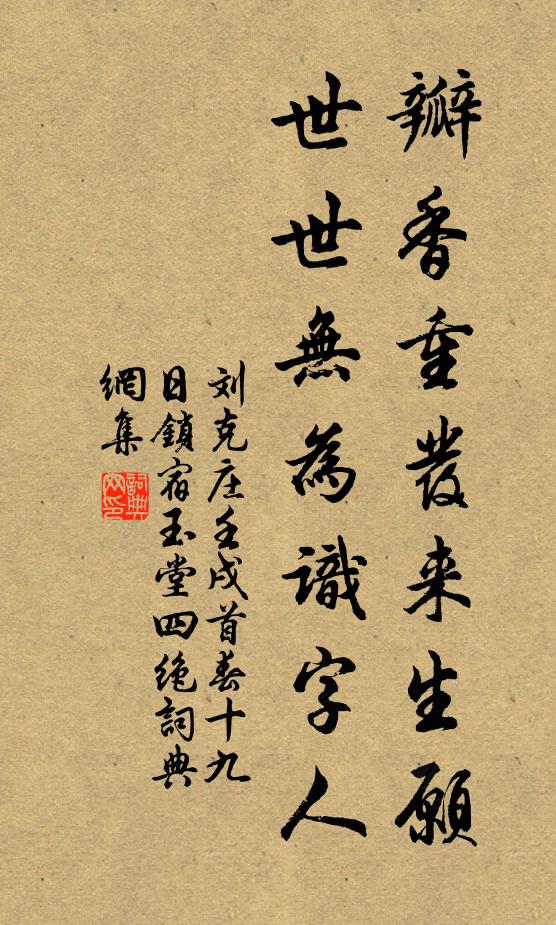 瓣香重發来生願
世世無為識字人
刘克庄壬戌首春十九
日鎖宿玉堂四绝詞典
網集
詞典
网印